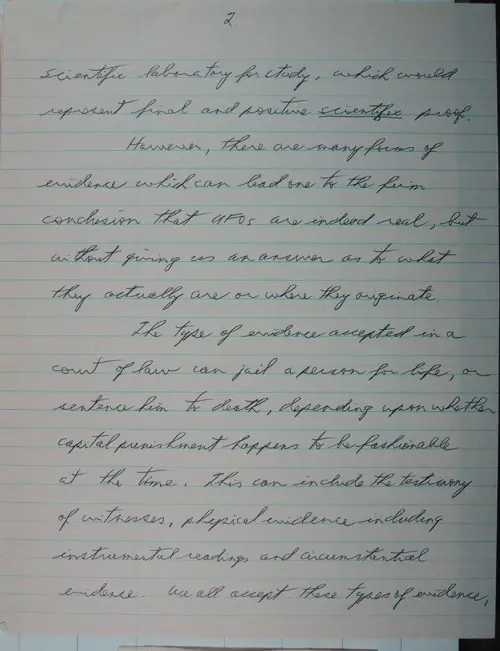 2
scientific laboratory for study, which would
represent final and positive scientific proof.
However, there are many forms of
evidence which can lead one to the firm
conclusion that UFOs are indeed real, but
without giving us an answer as to what
they actually are or where they originate.
The type of evidence accepted in a
court of law can jail a person for life, or
sentence him to death, depending upon whether
capital punishment happens to be fashionable
at the time. This can include the testimony
of witnesses, physical evidence including
instrumental readings and circumstantial
evidence. We all accept these types of evidence,